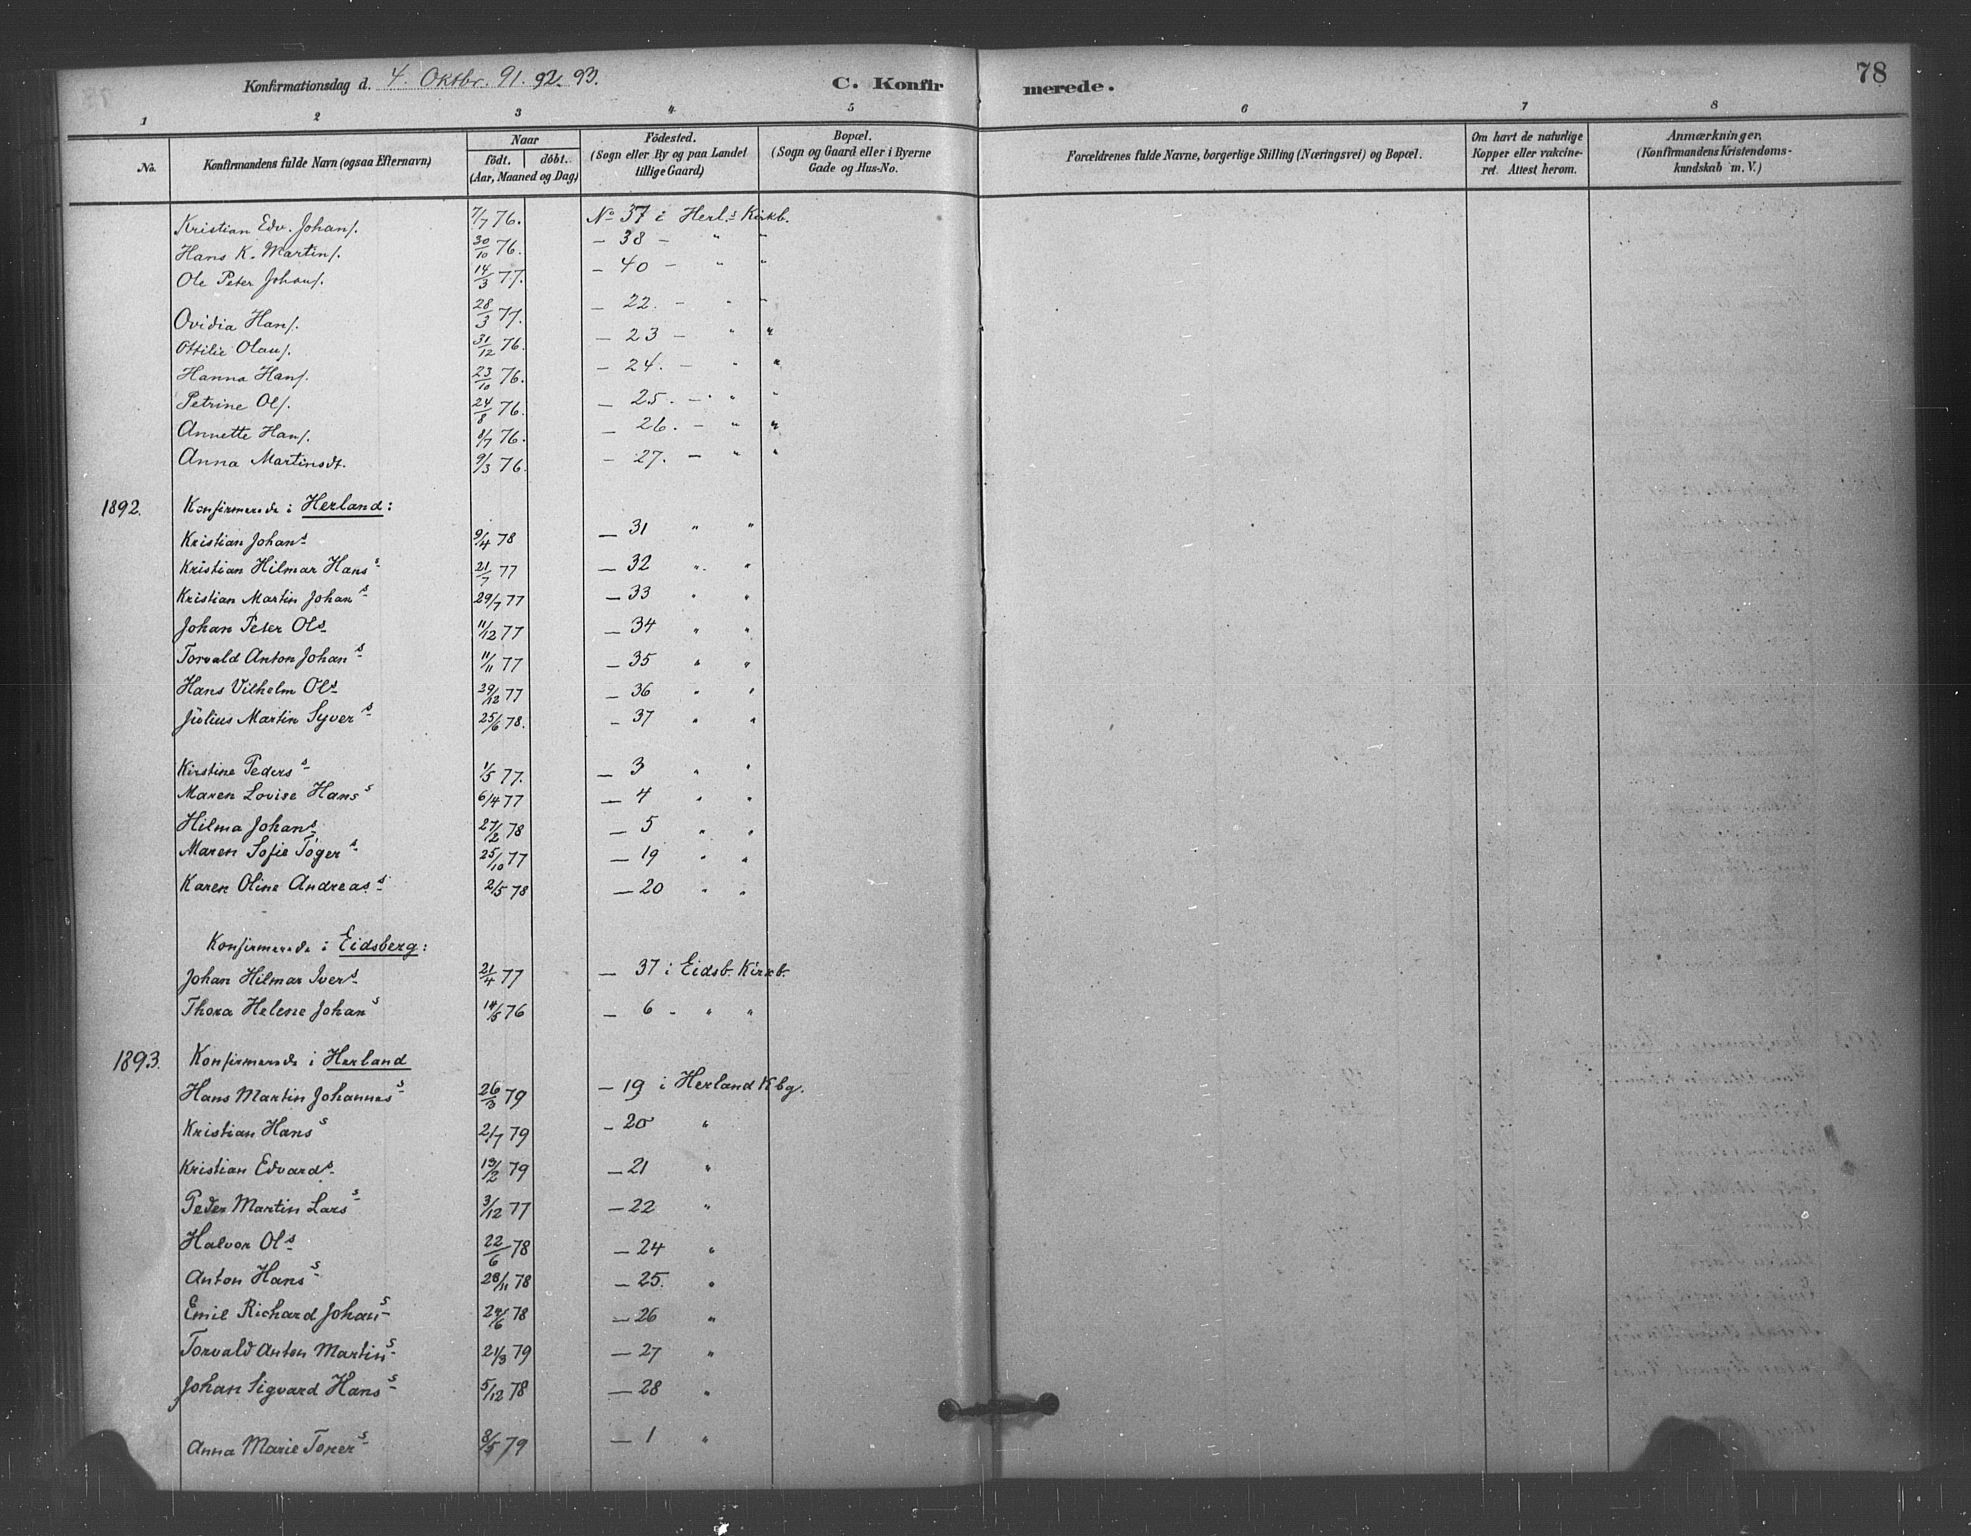 78
Konfirmationsdag d. 4. Oktbr. 91. 92. 93.
C. Konfirmerede.
1 2 3 4 5 6 7 8
No.
Konfirmandens fulde Navn (ogsaa Efternavn)
Naar
födt. döbt.
(Aar, Maaned og Dag)
Födested.
(Sogn eller By og paa Landet
tillige Gaard)
Bopæl.
(Sogn og Gaard eller i Byerne
Gade og Hus-No.
Forældrenes fulde Navne, borgerlige Stilling (Næringsvei) og Bopæl.
Om havt de naturlige
Kopper eller vakcine-
ret. Attest herom.
Anmærkninger.
(Konfirmandens Kristendoms-
kundskab m. V.)
Kristian Edv. Johans. 7/7 76. No 37 i Herl.s Kirkb.
Hans K. Martins. 30/10 76. — 38 — " "
Ole Peter Johans. 14/3 77. — 40 — " "
Ovidia Hans. 28/3 77. — 22. — " "
Ottilie Olaus. 31/12 76. — 23 — " "
Hanna Hans. 23/10 76. — 24. — " "
Petrine Ols. 24/8 76. — 25. — " "
Annette Hans. 8/7 76. — 26. — " "
Anna Martinsdt. 9/3 76. — 27. — " "
1892. Konfirmerede i Herland:
Kristian Johans 9/4 78 — 31 " "
Kristian Hilmar Hans s 21/7 77 — 32 " "
Kristian Martin Johan s 29/7 77 — 33 " "
Johan Peter Ols 11/12 77 — 34 " "
Torvald Anton Johan s 11/11 77 — 35 " "
Hans Vilhelm Ols 29/12 77 — 36 " "
Julius Martin Syver s 25/6 78. — 37 " "
Kirstine Peders s 1/5 77. — 3 " "
Maren Lovise Hans s 6/4 77 — 4 " "
Hilma Johans 27/2 78 — 5 " "
Maren Sofie Töger s 25/10 77 — 19 " "
Karen Oline Andreas s 2/5 78 — 20 " "
Konfirmerede i Eidsberg:
Johan Hilmar Ivers 21/4 77 — 37 i Eidsb. Kirkb.
Thora Helene Johan s 14/5 76 — 6 - " "
1893. Konfirmerede i Herland
Hans Martin Johannes s 26/3 79 — 19 i Herland Kbg.
Kristian Hans s 2/7 79 — 20 "
Kristian Edvards 13/2 79 — 21 "
Peder Martin Lars s 3/12 77 — 22 "
Halvor Ols 22/6 78 — 24 "
Anton Hans s 28/11 78 — 25. "
Emil Richard Johan s 78 — 26 "
Torvald Anton Martin s 21/3 79 — 27 "
Johan Sigvard Hans s 5/12 78 — 28 "
Anna Marie Torer s 3/5 79 — 1 "